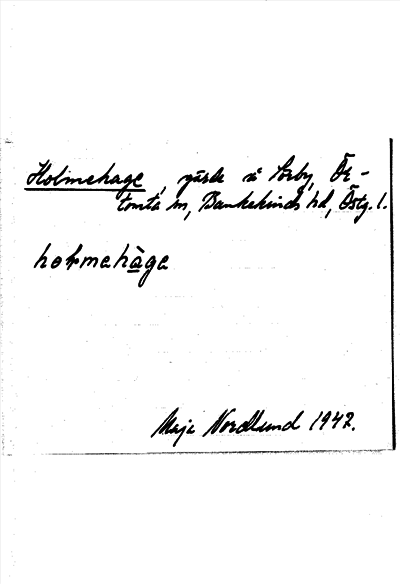 Holmehage, gärde å Sörby, Ör-
tomta sn, Bankekinds hd, Östg. l.
holmehàge
Maja Nordlund 1942.